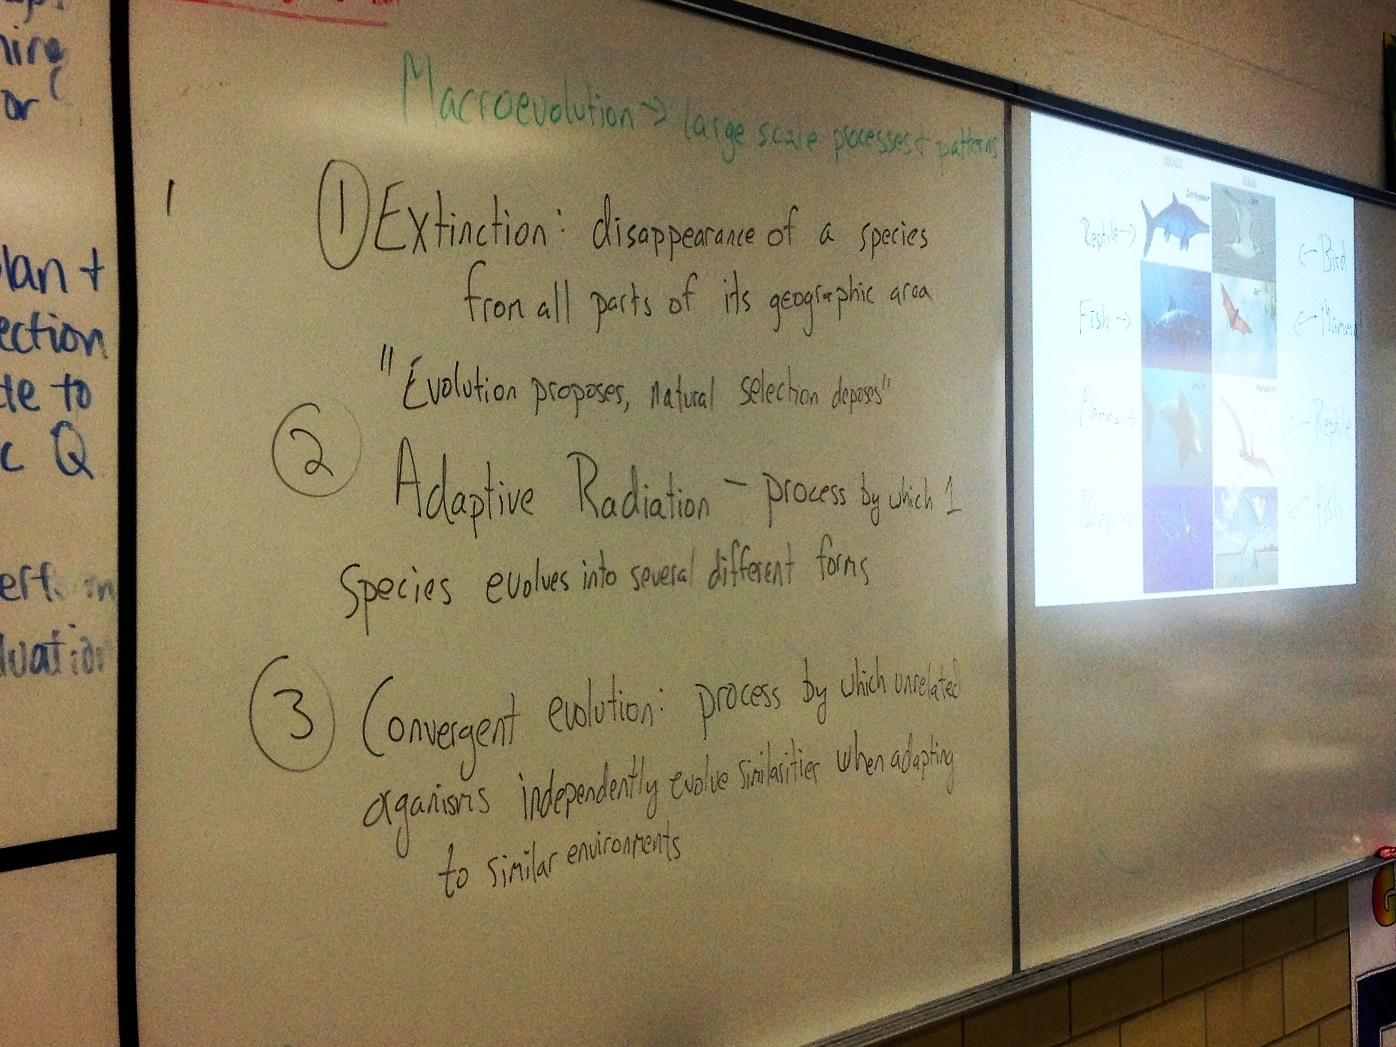 hire
or
lan +
ection
te to
c Q
luation
Macroevolution → large scale processes + patterns
1 Extinction: disappearance of a species
from all parts of its geographic area
"Evolution proposes, natural selection deposes"
2 Adaptive Radiation – process by which 1
species evolves into several different forms
3 Convergent evolution: process by which unrelated
organisms independently evolve similarities when adapting
to similar environments
Reptile →
← Bird
Fish →
← Mammal
Mammal →
← Reptile
Bird →
← Fish